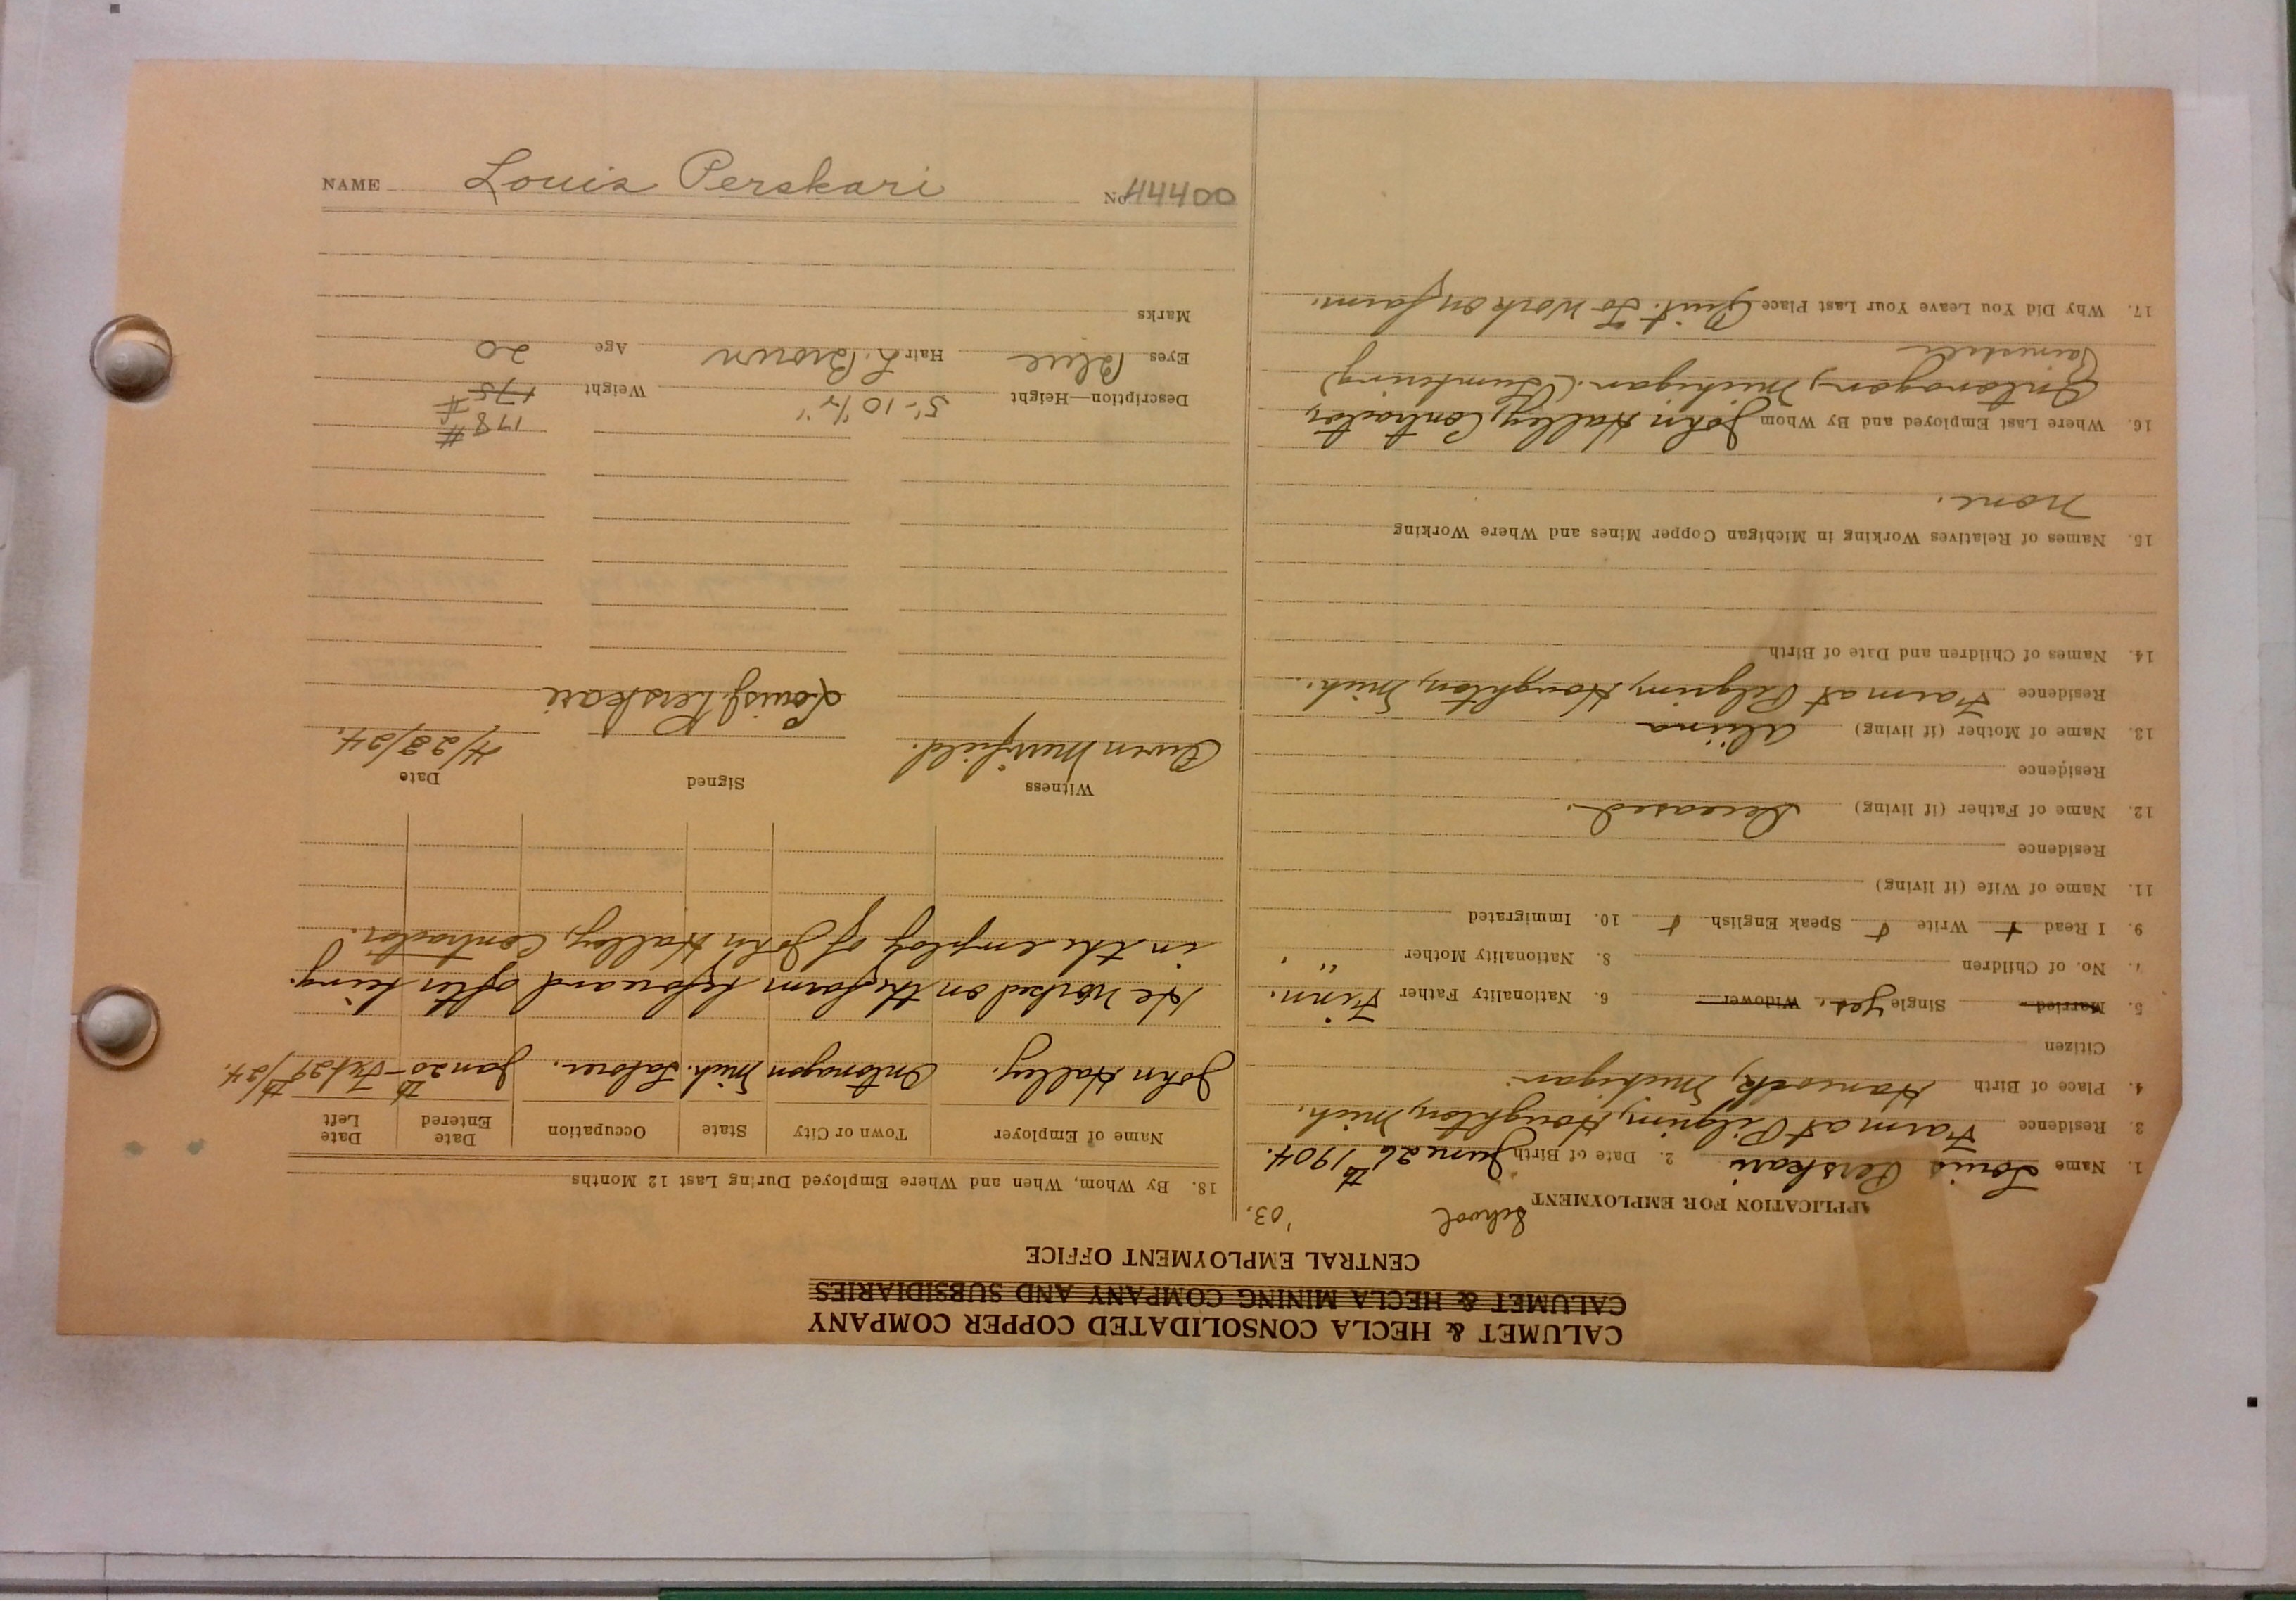 CALUMET & HECLA CONSOLIDATED COPPER COMPANY
CALUMET & HECLA MINING COMPANY AND SUBSIDIARIES
CENTRAL EMPLOYMENT OFFICE
APPLICATION FOR EMPLOYMENT School '03.
1. Name Louis Perskari 2. Date of Birth June 26th 1904.
3. Residence Farm at Pilgrim, Houghton, Mich.
4. Place of Birth Hancock, Michigan
Citizen
5. Married Single yes. Widower 6. Nationality Father Finn.
7. No. of Children 8. Nationality Mother " .
9. I Read + Write + Speak English + 10. Immigrated
11. Name of Wife (if living)
Residence
12. Name of Father (if living) Deceased.
Residence
13. Name of Mother (if living) Aliina
Residence Farm at Pilgrim, Houghton, Mich.
14. Names of Children and Date of Birth
15. Names of Relatives Working in Michigan Copper Mines and Where Working
None.
16. Where Last Employed and By Whom John Halley, Contractor,
Ontonagon, Michigan. (Lumbering)
Painesdale
17. Why Did You Leave Your Last Place Quit. To work on farm.
18. By Whom, When and Where Employed During Last 12 Months
Name of Employer Town or City State Occupation Date Entered Date Left
John Halley. Ontonagon Mich. Laborer. Jan 20th - Feb 29th/24.
He worked on the farm before and after being
in the employ of John Halley, Contractor.
Witness Signed Date
Owen Merrifield. Louis J. Perskari 4/28/24.
178 #
Description—Height 5'-10 1/2" Weight 175 #
Eyes Blue Hair L. Brown Age 20
Marks
NAME Louis Perskari No. 44400